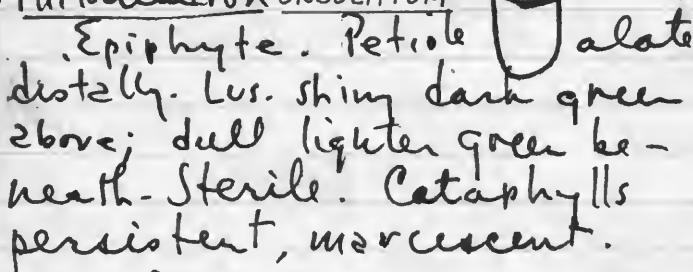 Epiphyte. Petiole alate
distally. Lvs. shiny dark green
above; dull lighter green be-
neath. Sterile. Cataphylls
persistent, marcescent.